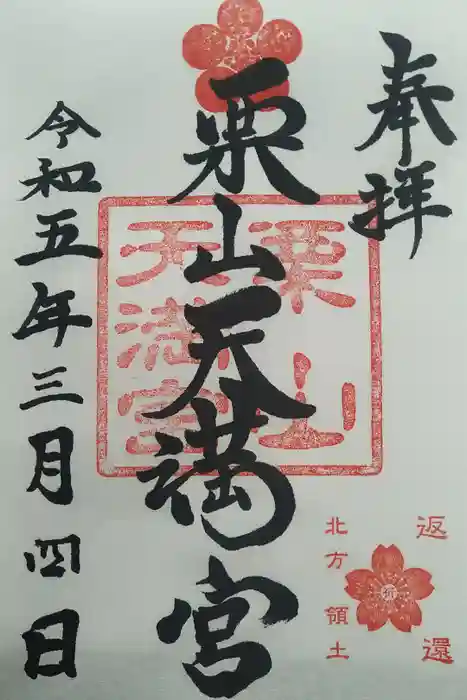 奉拝
栗山天満宮
令和五年三月四日
栗山
天満宮
返還
北方領土
祈